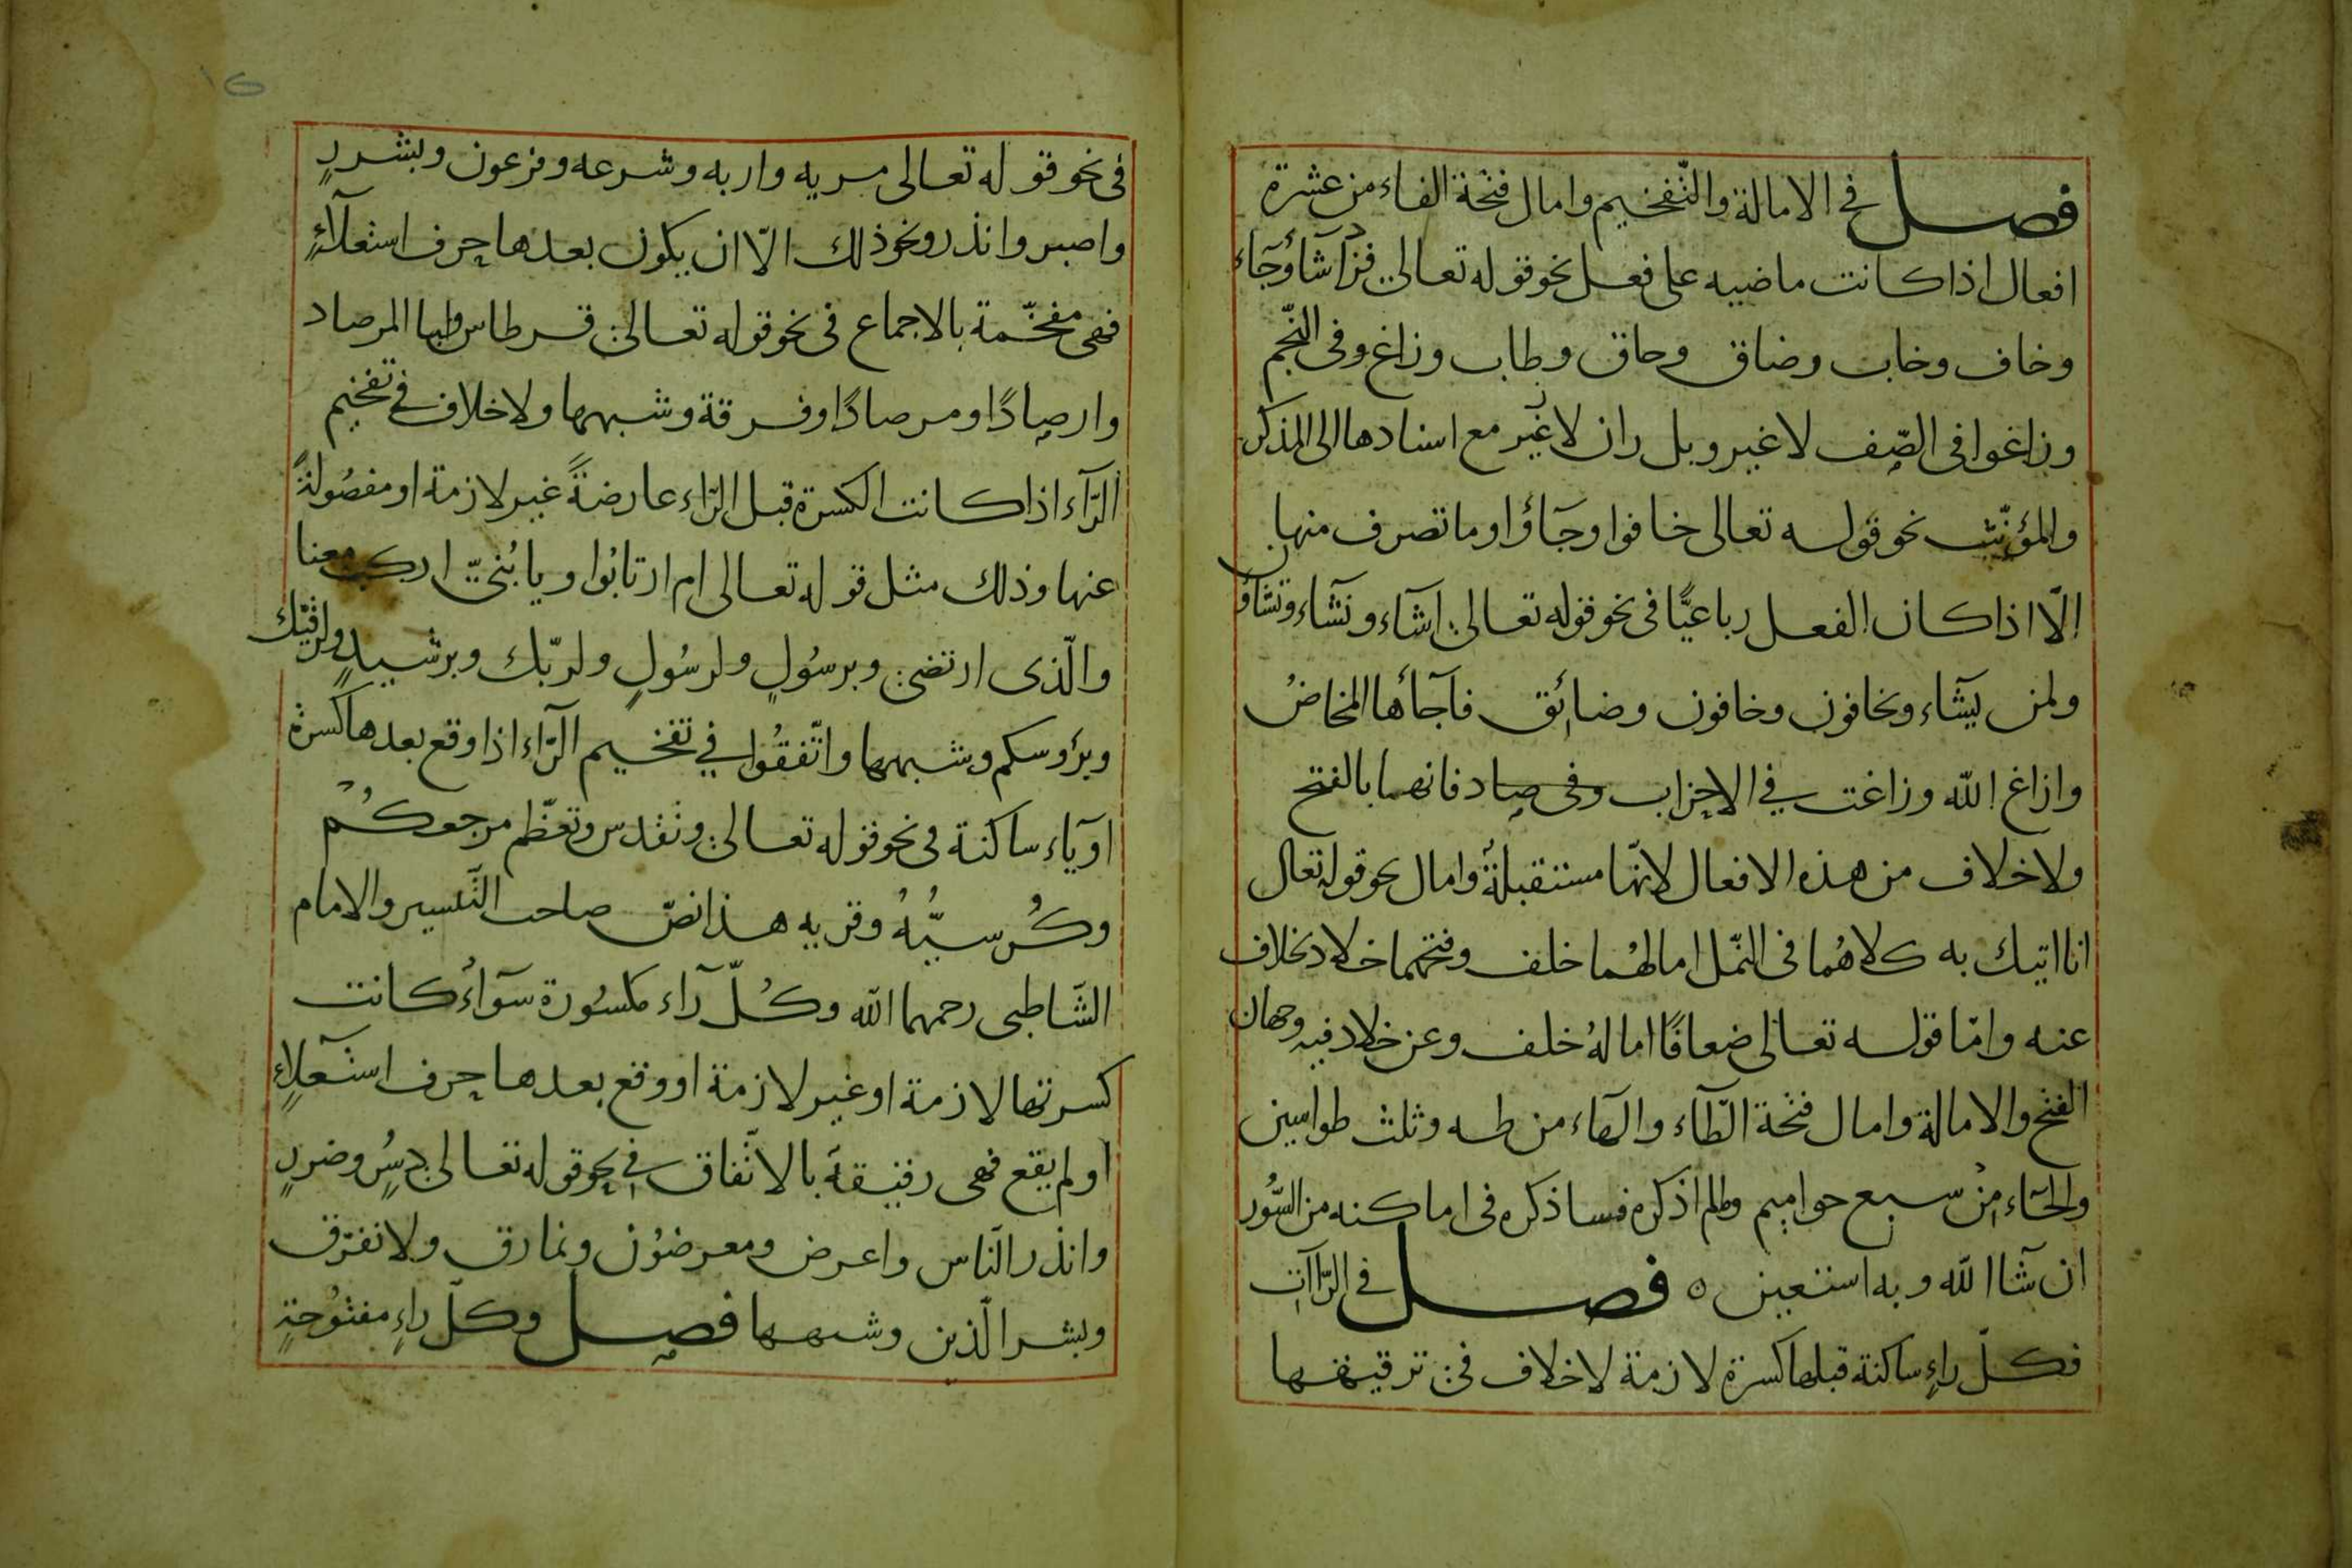 فصل في الامالة والتّفخيم وامال فتحة الفاء من عشرة
افعال اذا كانت ماضيه على فعل نحو قوله تعالى فزاد شآء وجآء
وخاف وخاب وضاق وحاق وطاب وزاغ وفى النّجم
وزاغوا فى الصّف لا غير وبل ران لا غير مع اسنادها الى المذكر
والمؤنّث نحو قوله تعالى خافوا وجآؤا وما تصرف منها
الّا اذا كان الفعل رباعيًّا فى نحو قوله تعالى اشآء ونشآء وتشآؤن
ولمن يشآء وتخافون وخافون وضائق فاجآءها المخاضُ
وازاغ الله وزاغت في الاحزاب وفى صاد فانهما بالفتح
ولا خلاف من هذه الافعال لانّها مستقبلةٌ وامال نحو قوله تعال
انا اتيك به كلاهُما فى النّمل امالهُما خلف وفتحهما خلاد بخلاف
عنه وامّا قوله تعالى ضعافًا امالهُ خلف وعن خلاد فيه وجهان
الفتح والامالة وامال فتحة الطّآء والهآء من طه وثلث طواسين
والحآء مِنْ سبع حواميم ومالم اذكره فساذكره فى اماكنه من السُّور
ان شآ الله وبه استعين ٥ فصل في الرّاآت
فكلّ راءٍ ساكنة قبلها كسرة لازمة لا خلاف فى ترقيقها
١٥
فى نحو قوله تعالى مريه واربه وشرعه وفرعون وبشررٍ
واصبر وانذر ونحو ذلك الّا ان يكون بعدها حرف استعلآءٍ
فهى مفخّمة بالاجماع فى نحو قوله تعالى قرطاس ولبا المرصاد
وارصادًا ومرصادًا وفرقة وشبهها ولا خلاف في تفخيم
الرّآء اذا كانت الكسرة قبل الرّاء عارضةً غير لازمة او مفصُولةً
عنها وذلك مثل قوله تعالى ام ارتابُوا ويا بُنىّ اركب معنا
والّذى ارتضى وبرسُولٍ ولرسُولٍ ولربّك وبرشيدٍ ولرقيّك
وبرؤسكم وشبهها واتّفقُوا في تفخيم الرّآء اذا وقع بعدها كسرة
او يآء ساكنة فى نحو قوله تعالى ونقدس وتعظّم مرجعكُم
وكُرسيُّهُ وقريه هذا نصّ صاحب التّيسير والامام
الشّاطبى رحمهما الله وكُلّ رآء مكسُورة سوآءٌ كانت
كسرتها لازمة او غير لازمة او وقع بعدها حرف استعلآءٍ
او لم يقع فهى رقيقة بالاتّفاق في نحو قوله تعالى دسُرٍ وضررٍ
وانذر النّاس واعرض ومعرضُون ونمارق ولا نفرّق
وبشر الّذين وشبهها فصل وكلّ راءٍ مفتوُحةٍ